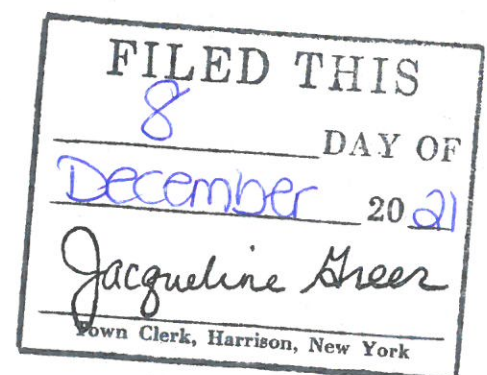 FILED THIS
8 DAY OF
December 20 21
Jacqueline Greer
Town Clerk, Harrison, New York